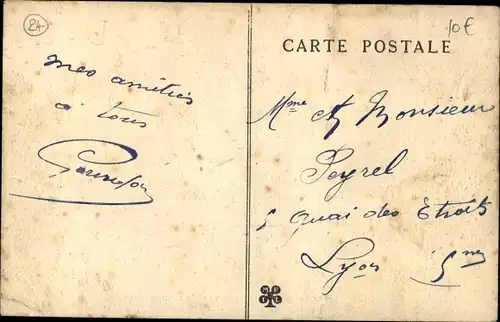 24
10 €
CARTE POSTALE
mes amitiés
à tous
Mme et Monsieur
Peyrel
5 quai des Etroits
Lyon 5me